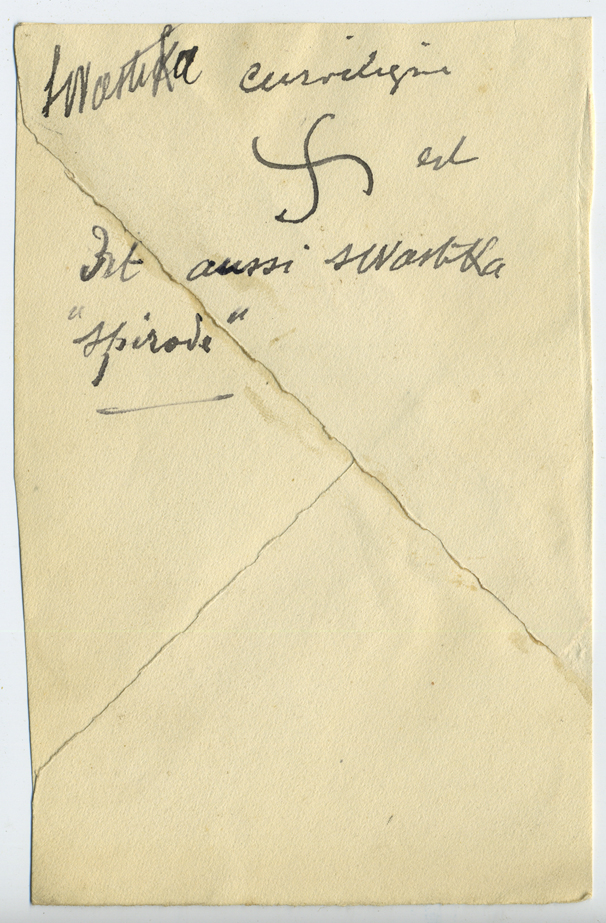 swastika curviligne
est
Est aussi swastika
"spirode"